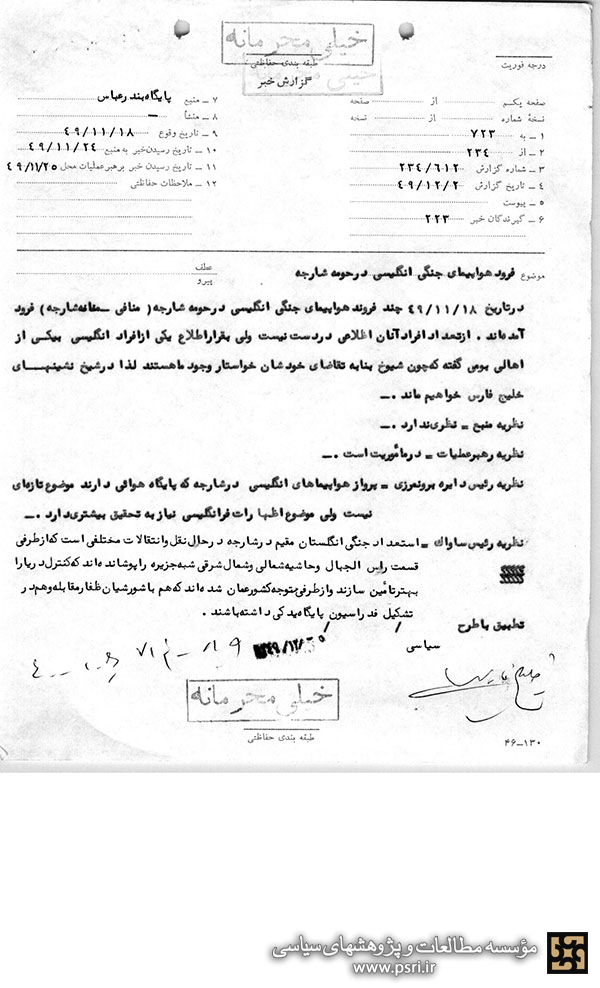 خیلی محرمانه
طبقه بندی حفاظتی
گزارش خبر
درجه فوریت
صفحه یکم از صفحه
نسخهٔ شماره از نسخه
۱ ــ به ۷۲۳
۲ ــ از ۲۳۴
۳ ــ شماره گزارش ۲۳۴/۶۱۲
۴ ــ تاریخ گزارش ۴۹/۱۲/۲
۵ ــ پیوست
۶ ــ گیرندگان خبر ۲۲۳
۷ ــ منبع پایگاه بندرعباس
۸ ــ منشأ ــ
۹ ــ تاریخ وقوع ۴۹/۱۱/۱۸
۱۰ ــ تاریخ رسیدن خبر به منبع ۴۹/۱۱/۲۴
۱۱ ــ تاریخ رسیدن خبر برهبر عملیات محل ۴۹/۱۱/۲۵
۱۲ ــ ملاحظات حفاظتی
موضوع فرود هواپیمای جنگی انگلیسی در حومه شارجه
عطف
پیرو
در تاریخ ۴۹/۱۱/۱۸ چند فروند هواپیمای جنگی انگلیسی در حومه شارجه ( منافی ــ منانه شارجه) فرود
آمده‌اند . از تعداد افراد آنان اطلاعی در دست نیست ولی بقرار اطلاع یکی از افراد انگلیسی بیکی از
اهالی بومی گفته که چون شیوخ بنا به تقاضای خودشان خواستار وجود ما هستند لذا در شیخ نشینهای
خلیج فارس خواهیم ماند . ــ
نظریه منبع = نظری ندارد . ــ
نظریه رهبر عملیات = در مأموریت است . ــ
نظریه رئیس دایره برونمرزی = پرواز هواپیماهای انگلیسی در شارجه که پایگاه هوائی دارند موضوع تازه‌ای
نیست ولی موضوع اظهارات فر انگلیسی نیاز به تحقیق بیشتری دارد . ــ
نظریه رئیس ساواک = استعداد جنگی انگلستان مقیم در شارجه در حال نقل و انتقالات مختلفی است که از طرفی
قسمت راس الجبال و حاشیه شمالی و شمال شرقی شبه جزیره را پوشانده‌اند که کنترل دریا را
بهتر تأمین سازند و از طرفی متوجه کشور عمان شده‌اند که هم با شورشیان ظفار مقابله و هم در
تشکیل فدراسیون پایگاه یدکی داشته باشند .
تطبیق با طرح
سیاسی
خلیج فارس
خیلی محرمانه
طبقه بندی حفاظتی
۴۶-۱۳۰
مؤسسه مطالعات و پژوهشهای سیاسی
www.psri.ir